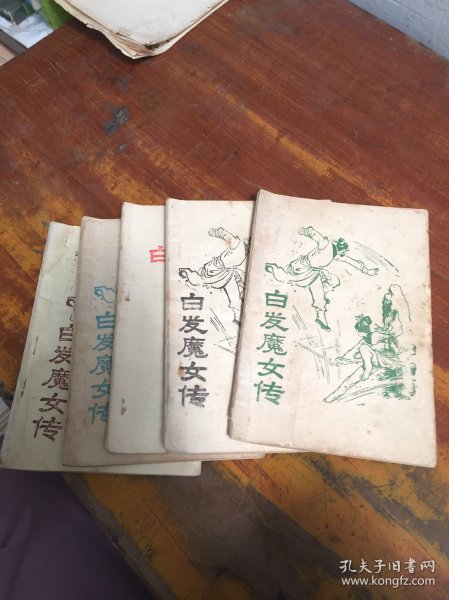 白发魔女传
白发魔女传
白
白发魔女传
白发魔女传
孔夫子旧书网
www.kongfz.com